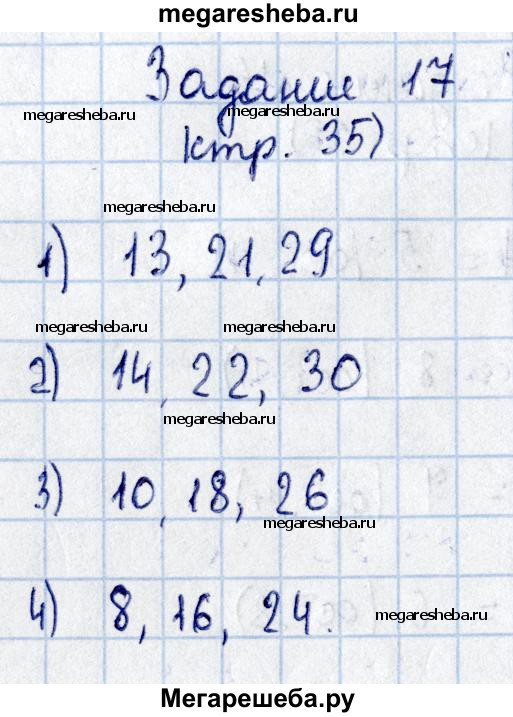 megaresheba.ru
Задание 17
megaresheba.ru megaresheba.ru
(стр. 35)
megaresheba.ru
1) 13, 21, 29
megaresheba.ru megaresheba.ru
2) 14, 22, 30
megaresheba.ru
3) 10, 18, 26
megaresheba.ru
4) 8, 16, 24.
megaresheba.ru
Мегарешеба.ру